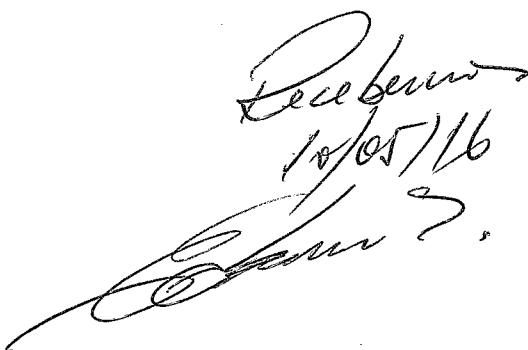 Recebemos
10/05/16